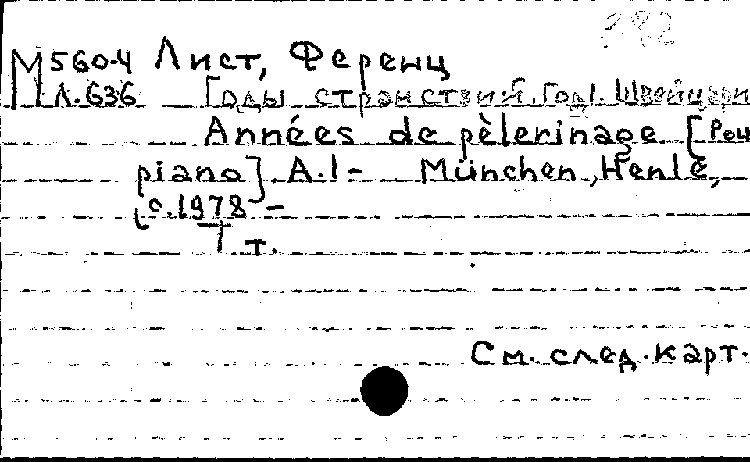 М560-4 Лист, Ференц
Л.636 Годы странствий. Год I. Швейцари
Années de pèlerinage [Pour
piano] A.1 - München, Henle,
c.1978 -
1 т.
См. след. карт.